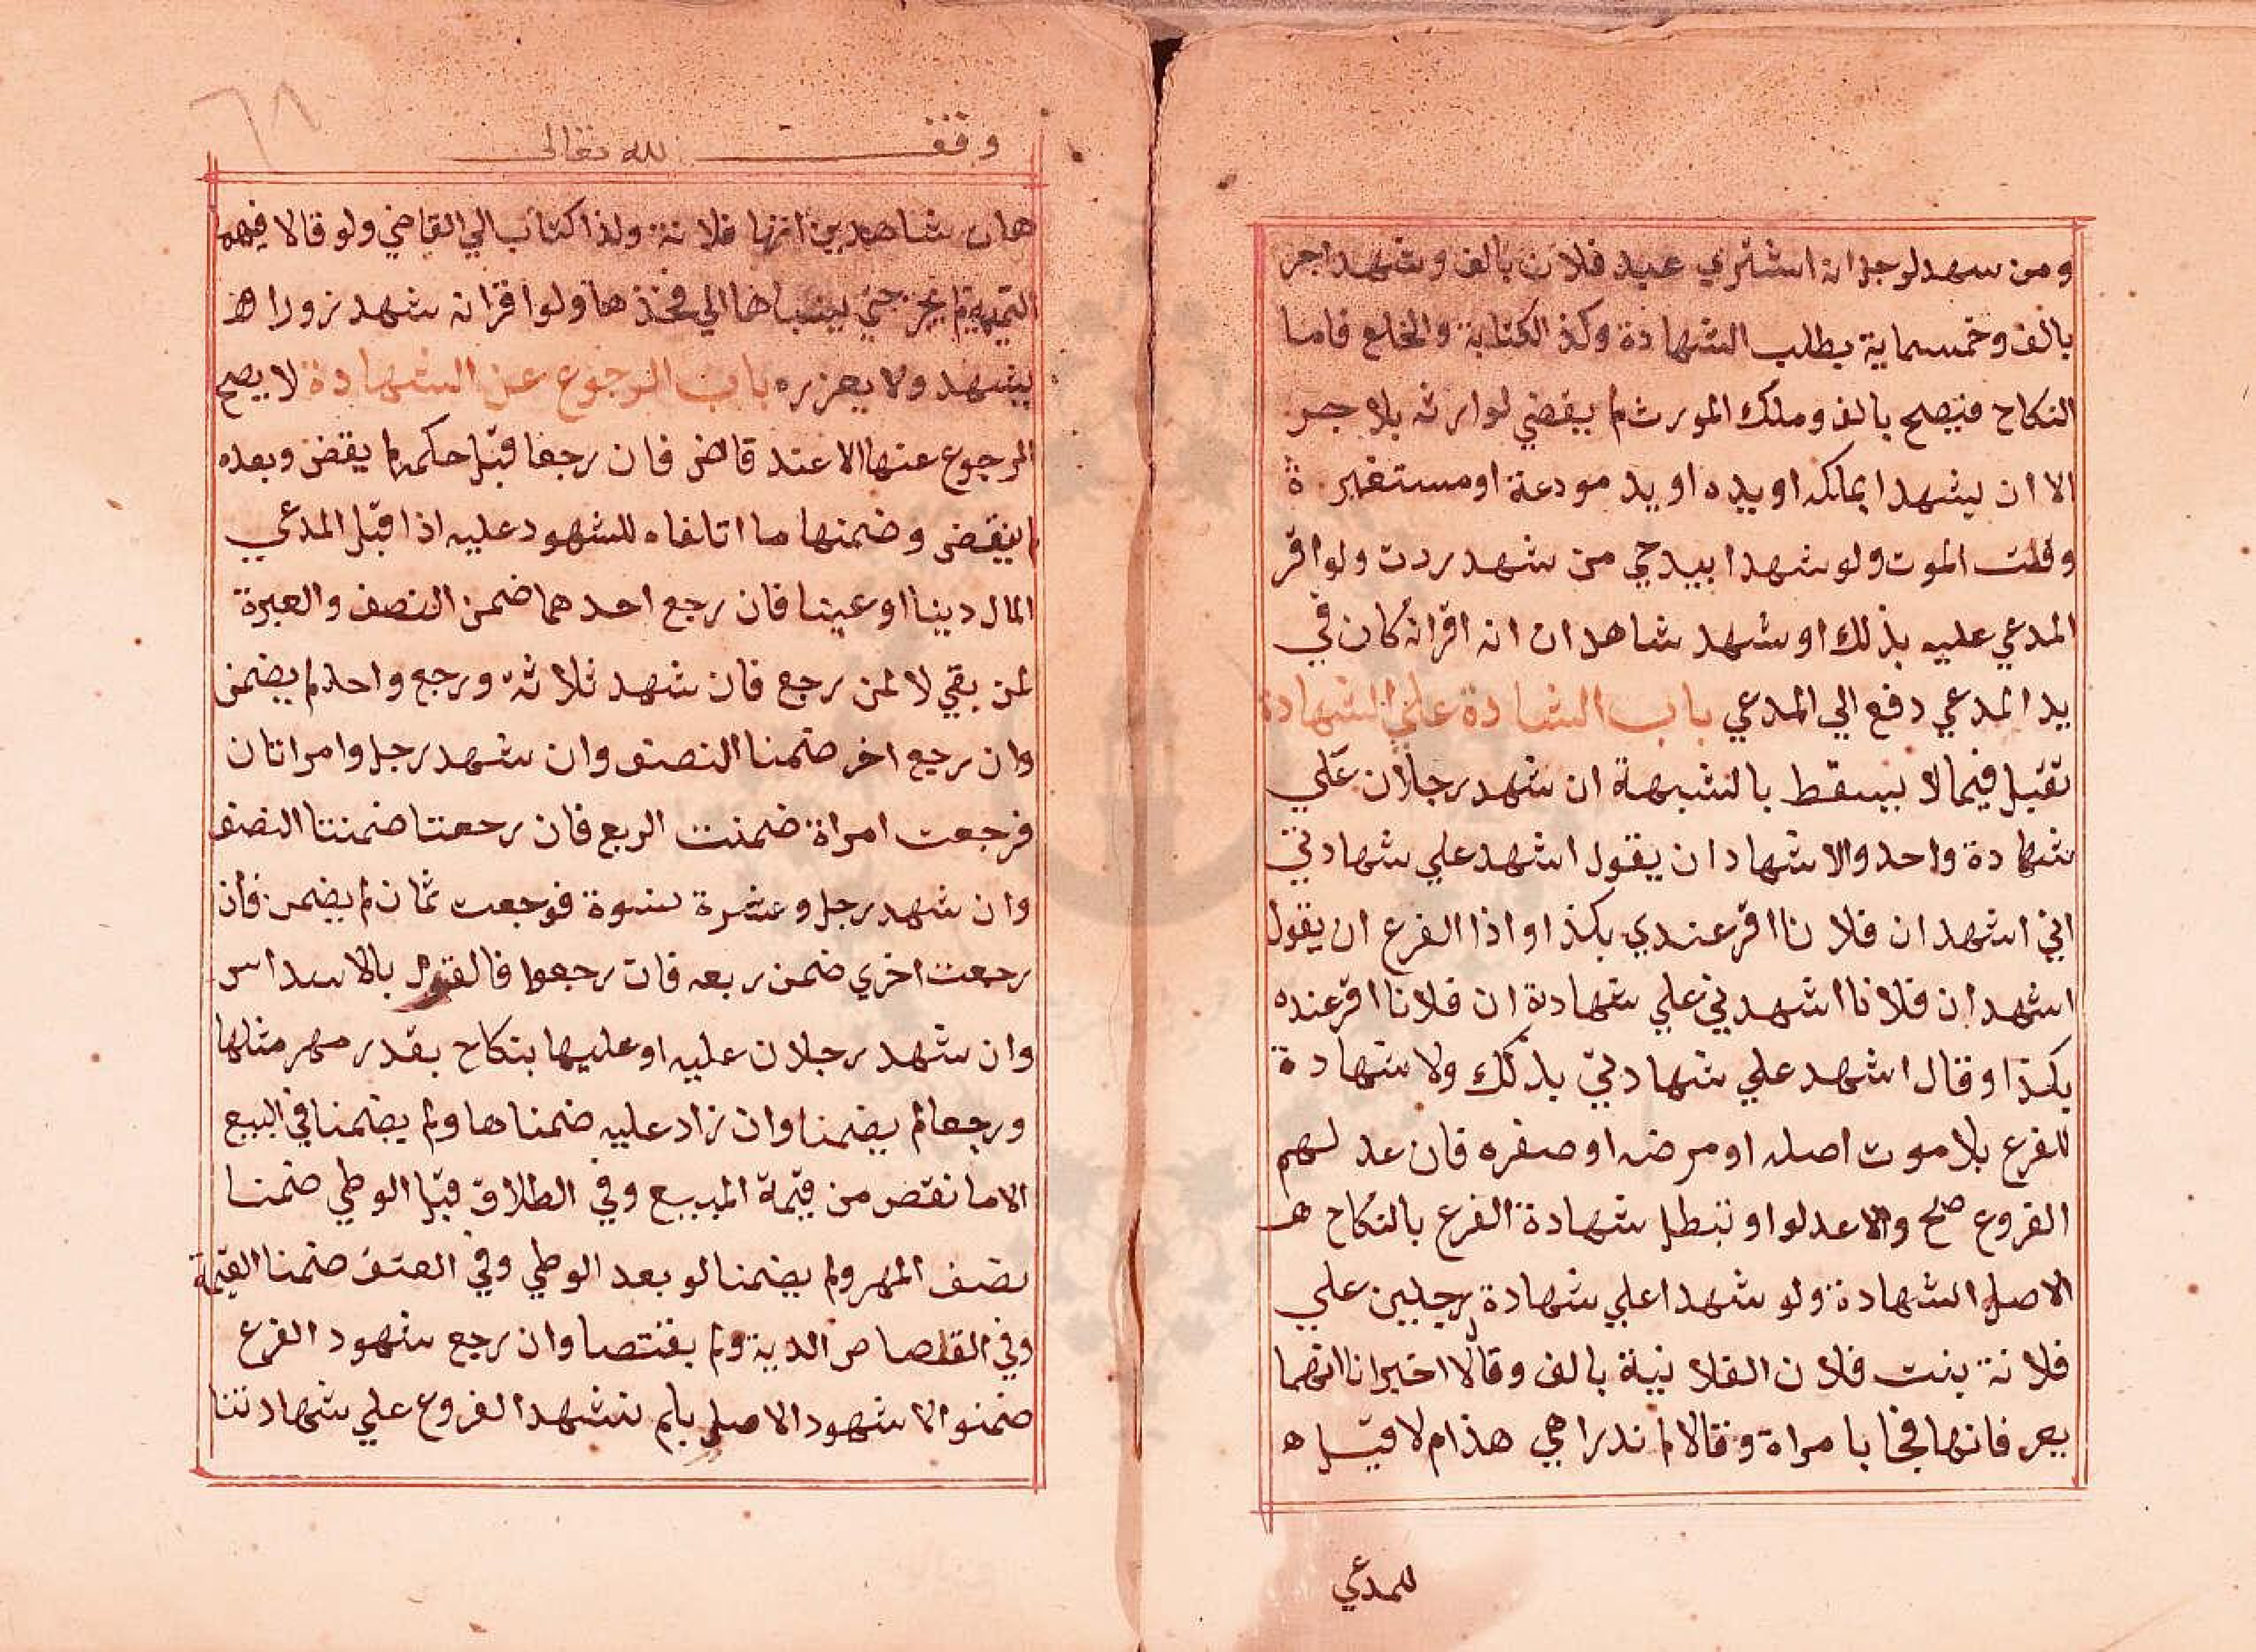 ومن شهد لرجل انه اشتري عبد فلان بالف وشهد اخر
بالف وخمسماية بطلب الشهادة وكذ الكتابة والخلع فاما
النكاح فيصح بالف وملك المورث لم يقضي لوارثه بلا جر
الا ان يشهدا بملكه او يده او يد مودعة او مستعيرة
وقلت الموت ولو شهدا بيد حي من شهد ردت ولو اقر
المدعي عليه بذلك او شهد شاهدان انه اقرانه كان في
يد المدعي دفع الي المدعي باب الشهادة علي الشهادة
تقبل فيما لا يسقط بالشبهة ان شهد رجلان علي
شهادة واحد والاشهاد ان يقول اشهد علي شهادتي
اني اشهد ان فلانا اقر عندي بكذا واذا الفرع ان يقول
اشهد ان فلانا اشهدني علي شهادة ان فلانا اقر عنده
بكذا وقال اشهد علي شهادتي بذلك ولا شهادة
للفرع بلا موت اصله او مرضه او صفره فان عدلهم
الفروع صح والا عدلوا وتبطل شهادة الفرع بالنكاح هـ
الاصل الشهادة ولو شهدا علي شهادة رجلين علي
فلانة بنت فلان الفلانية بالف وقالا اخبرانا انهما
يعر فانها فجا بامراة وقالا لم ندرا هي هذا م لا قيل ه
للمدعي
وقف لله تعالى
٦٨
هات شاهدين انها فلانة ولذا كتاب الي القاضي ولو قالا فيهم
التميمة لم يجز حتي ينسباها الي فخذها ولو اقر انه شهد زورا هـ
يشهد ولا يعزره باب الرجوع عن الشهادة لا يصح
الرجوع عنها الا عند قاض فان رجعا قبل حكمه لم يقض وبعده
لم ينقض وضمنها ما اتلفاه للشهود عليه اذا قبل المدعي
المال دينا او عينا فان رجع احدهما ضمن النصف والعبرة
لمن بقي لا لمن رجع فان شهد ثلاثة ورجع واحد لم يضمن
وان رجع اخر ضمنا النصف وان شهد رجل وامراتان
فرجعت امراة ضمنت الربع فان رجعتا ضمنتا النصف
وان شهد رجل وعشرة نسوة فرجعت ثمان لم يضمن فان
رجعت اخري ضمن ربعه فان رجعوا فالقول بالاسداس
وان شهد رجلان عليه او عليها بنكاح بقدر مهر مثلها
ورجعا لم يضمنا وان زاد عليه ضمناها ولم يضمنا في البيع
الا ما نقص من قيمة المبيع وفي الطلاق قبل الوطي ضمنا
نصف المهر ولم يضمنا لو بعد الوطي وفي العتق ضمنا القيمة
وفي القصاص الدية ولم يقتصا وان رجع شهود الفرع
ضمنوا لا شهود الاصل بلم نشهد الفروع علي شهادتنا